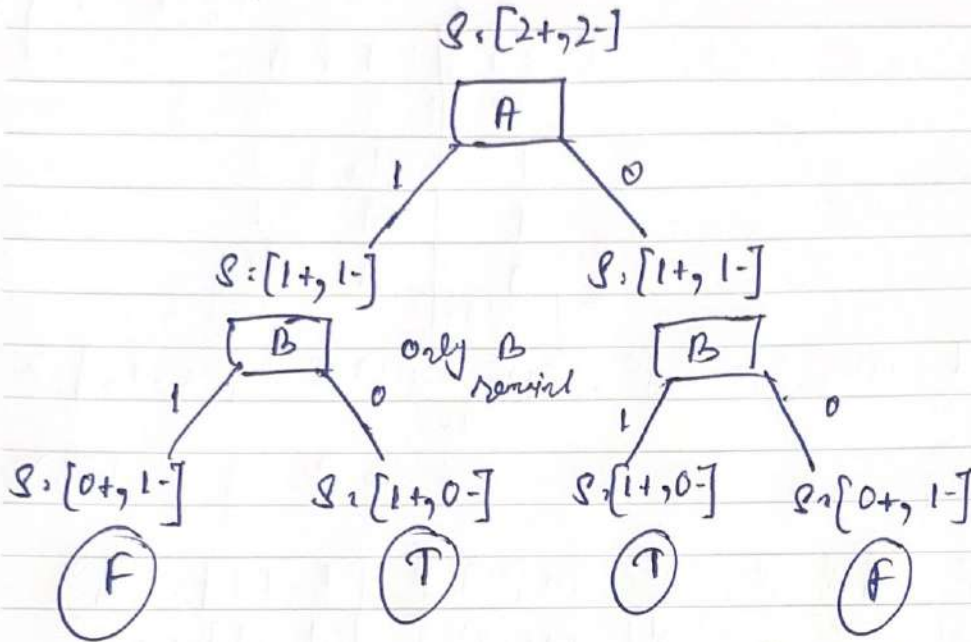 S: [2+, 2-]
A
1 0
S: [1+, 1-] S: [1+, 1-]
B only B B
1 0 1 0
S: [0+, 1-] S: [1+, 0-] S: [1+, 0-] S: [0+, 1-]
F T T F